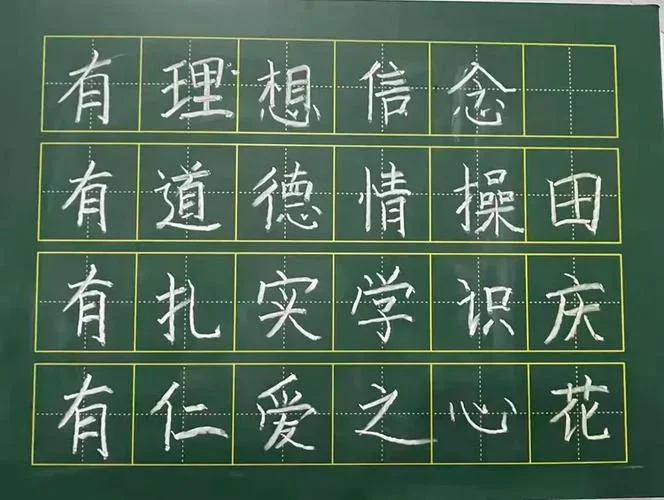 有理想信念
有道德情操田
有扎实学识庆
有仁爱之心花